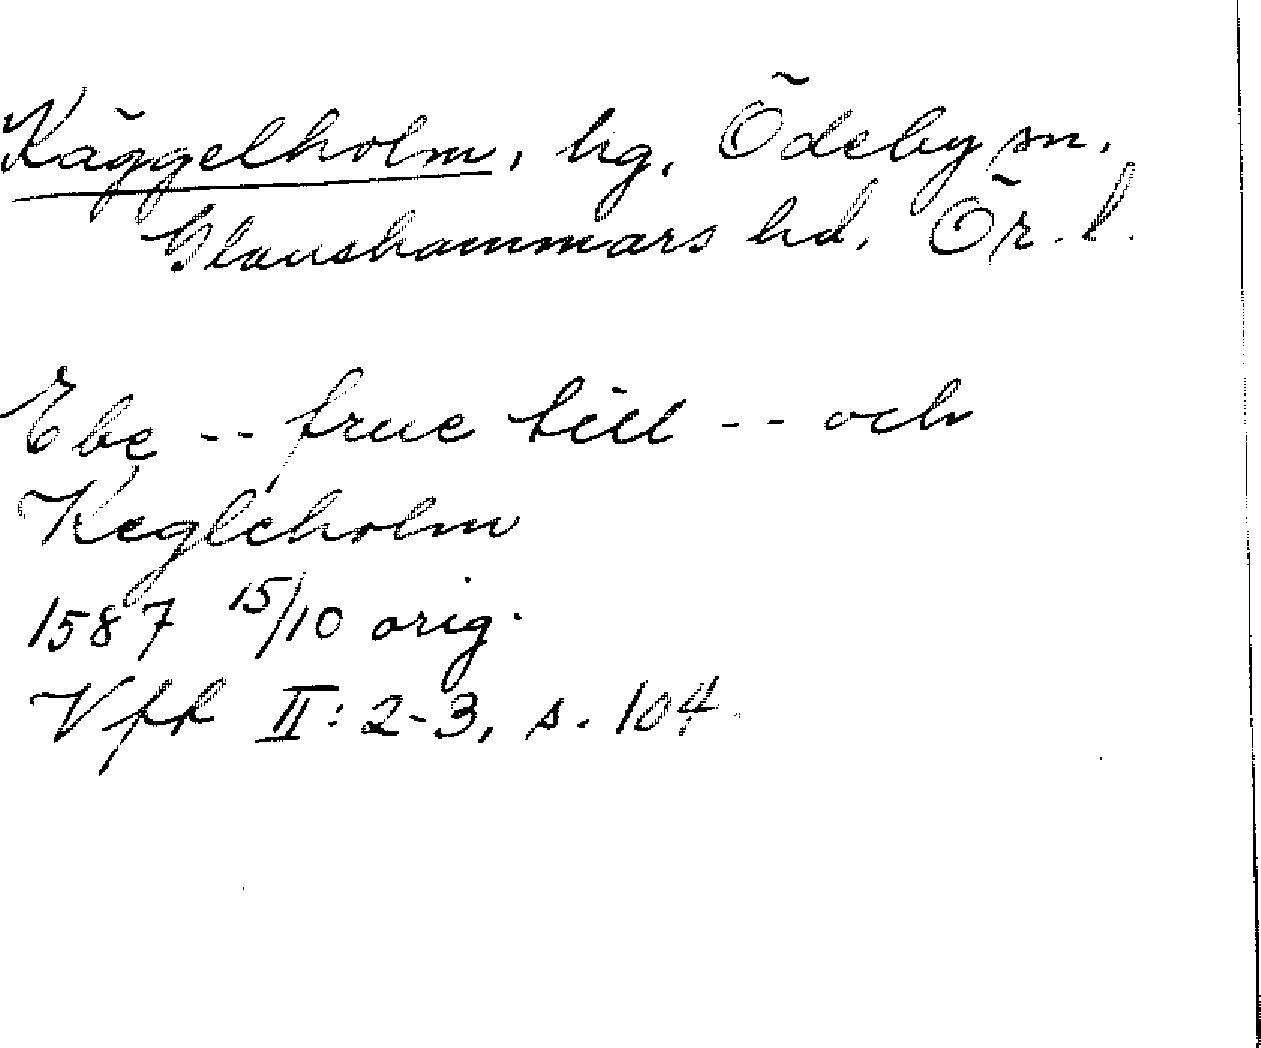 Käggelholm, hg, Ödeby sn.
Glanshammars hd. Ör. l.
Ebe -- frue till -- och
Kegleholm
1587 15/10 orig.
Vfr II: 2-3, s. 104